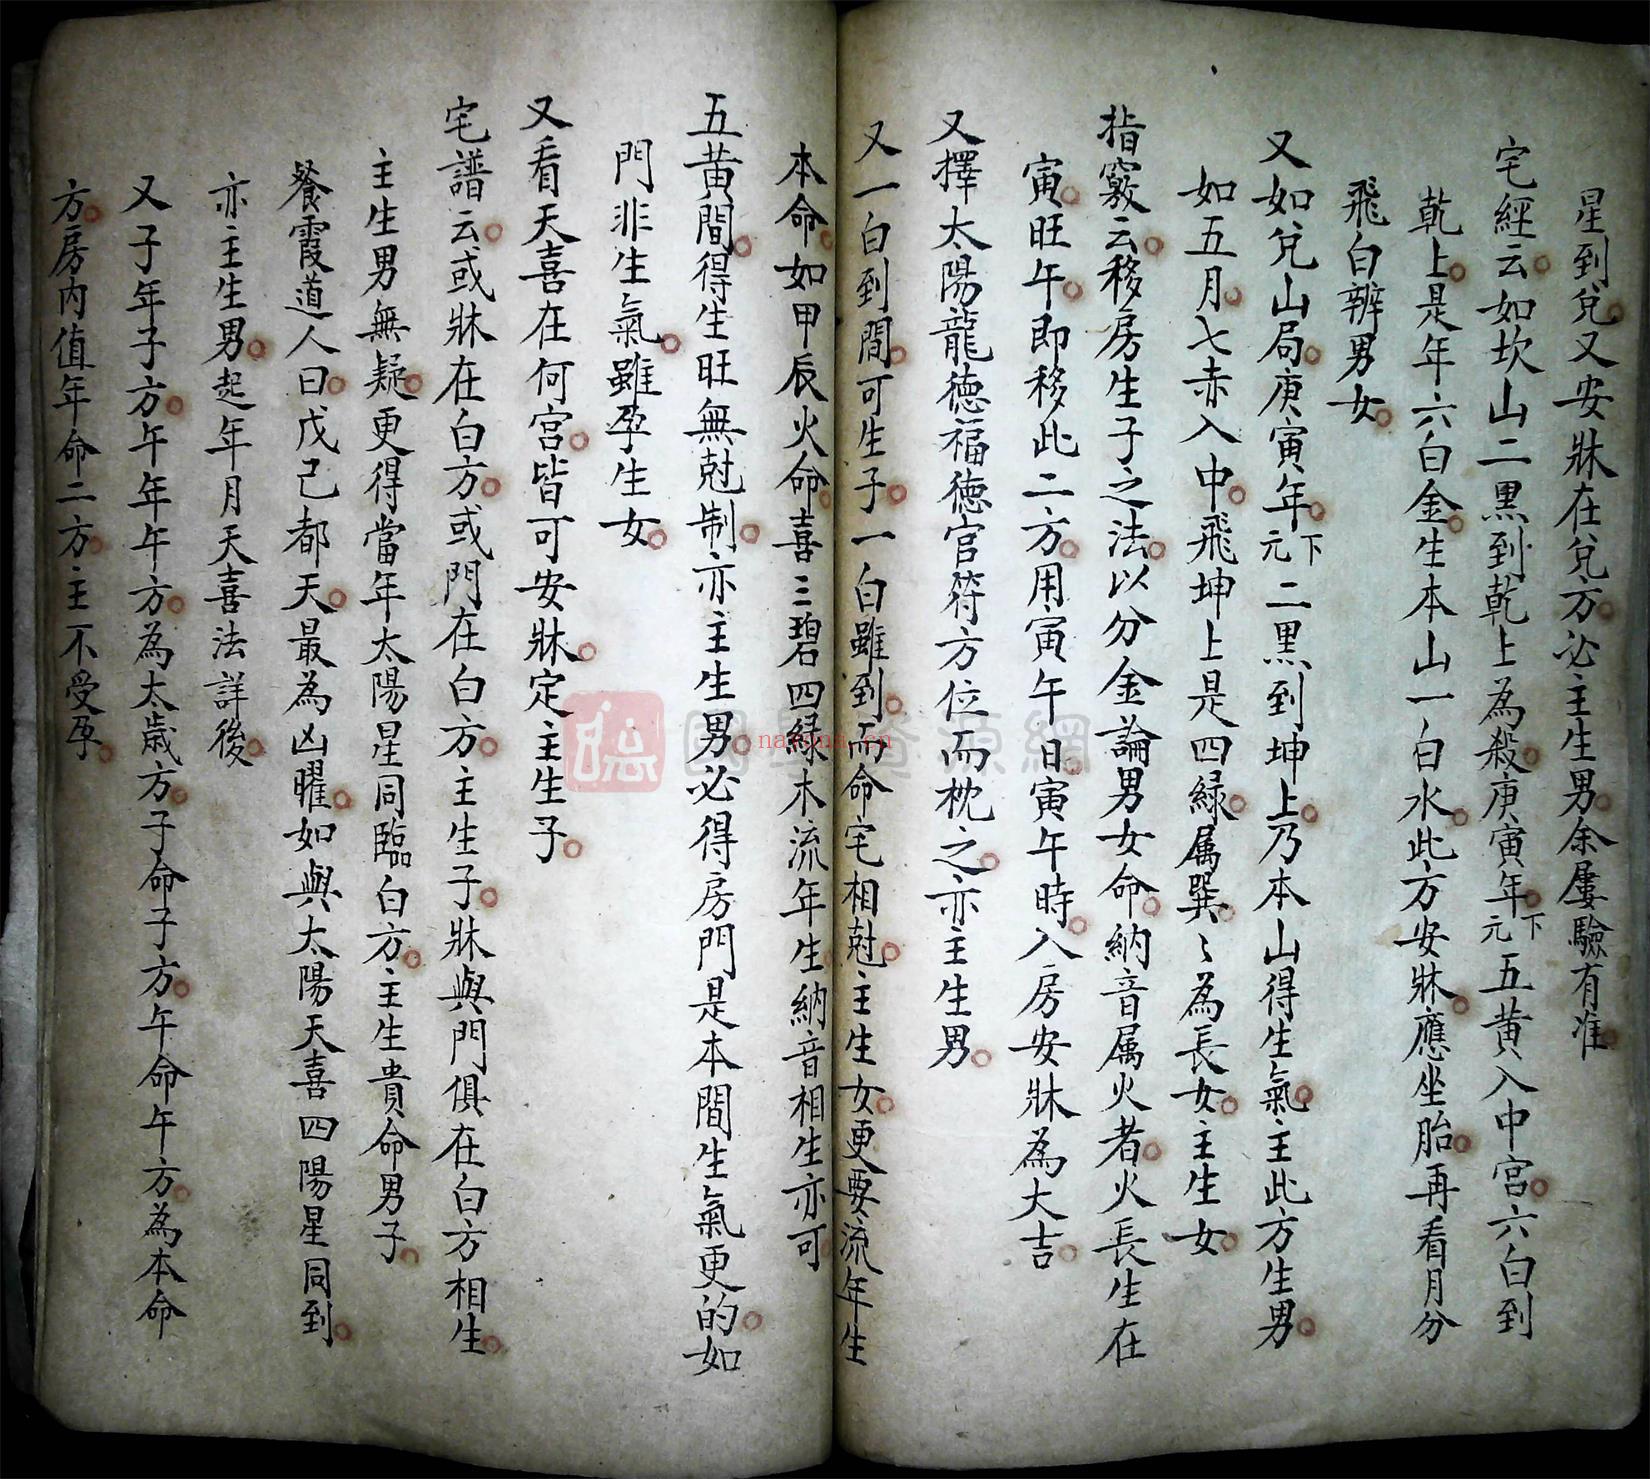 星到兌又安牀在兌方必主生男余屢驗有准
宅經云如坎山二黑到乾上為殺庚寅年下元五黃入中宮六白到
乾上是年六白金生本山一白水此方安牀應坐胎再看月分
飛白辨男女
又如兌山局庚寅年下元二黑到坤上乃本山得生氣主此方生男
如五月七赤入中飛坤上是四綠属巽〻為長女主生女
指竅云移房生子之法以分金論男女命納音属火者火長生在
寅旺午即移此二方用寅午日寅午時入房安牀為大吉
又擇太陽龍德福德官符方位而枕之亦主生男
又一白到間可生子一白雖到而命宅相尅主生女更要流年生
本命如甲辰火命喜三碧四綠木流年生納音相生亦可
五黃間得生旺無尅制亦主生男必得房門是本間生氣更的如
門非生氣雖孕生女
又看天喜在何宮皆可安牀定主生子
宅譜云或牀在白方或門在白方主生子牀與門俱在白方相生
主生男無疑更得當年太陽星同臨白方主生貴命男子
餐霞道人曰戊己都天最為凶曜如與太陽天喜四陽星同到
亦主生男起年月天喜法詳後
又子年子方午年午方為太歲方子命子方午命午方為本命
方房內值年命二方主不受孕
國學資源網
nayona.cn